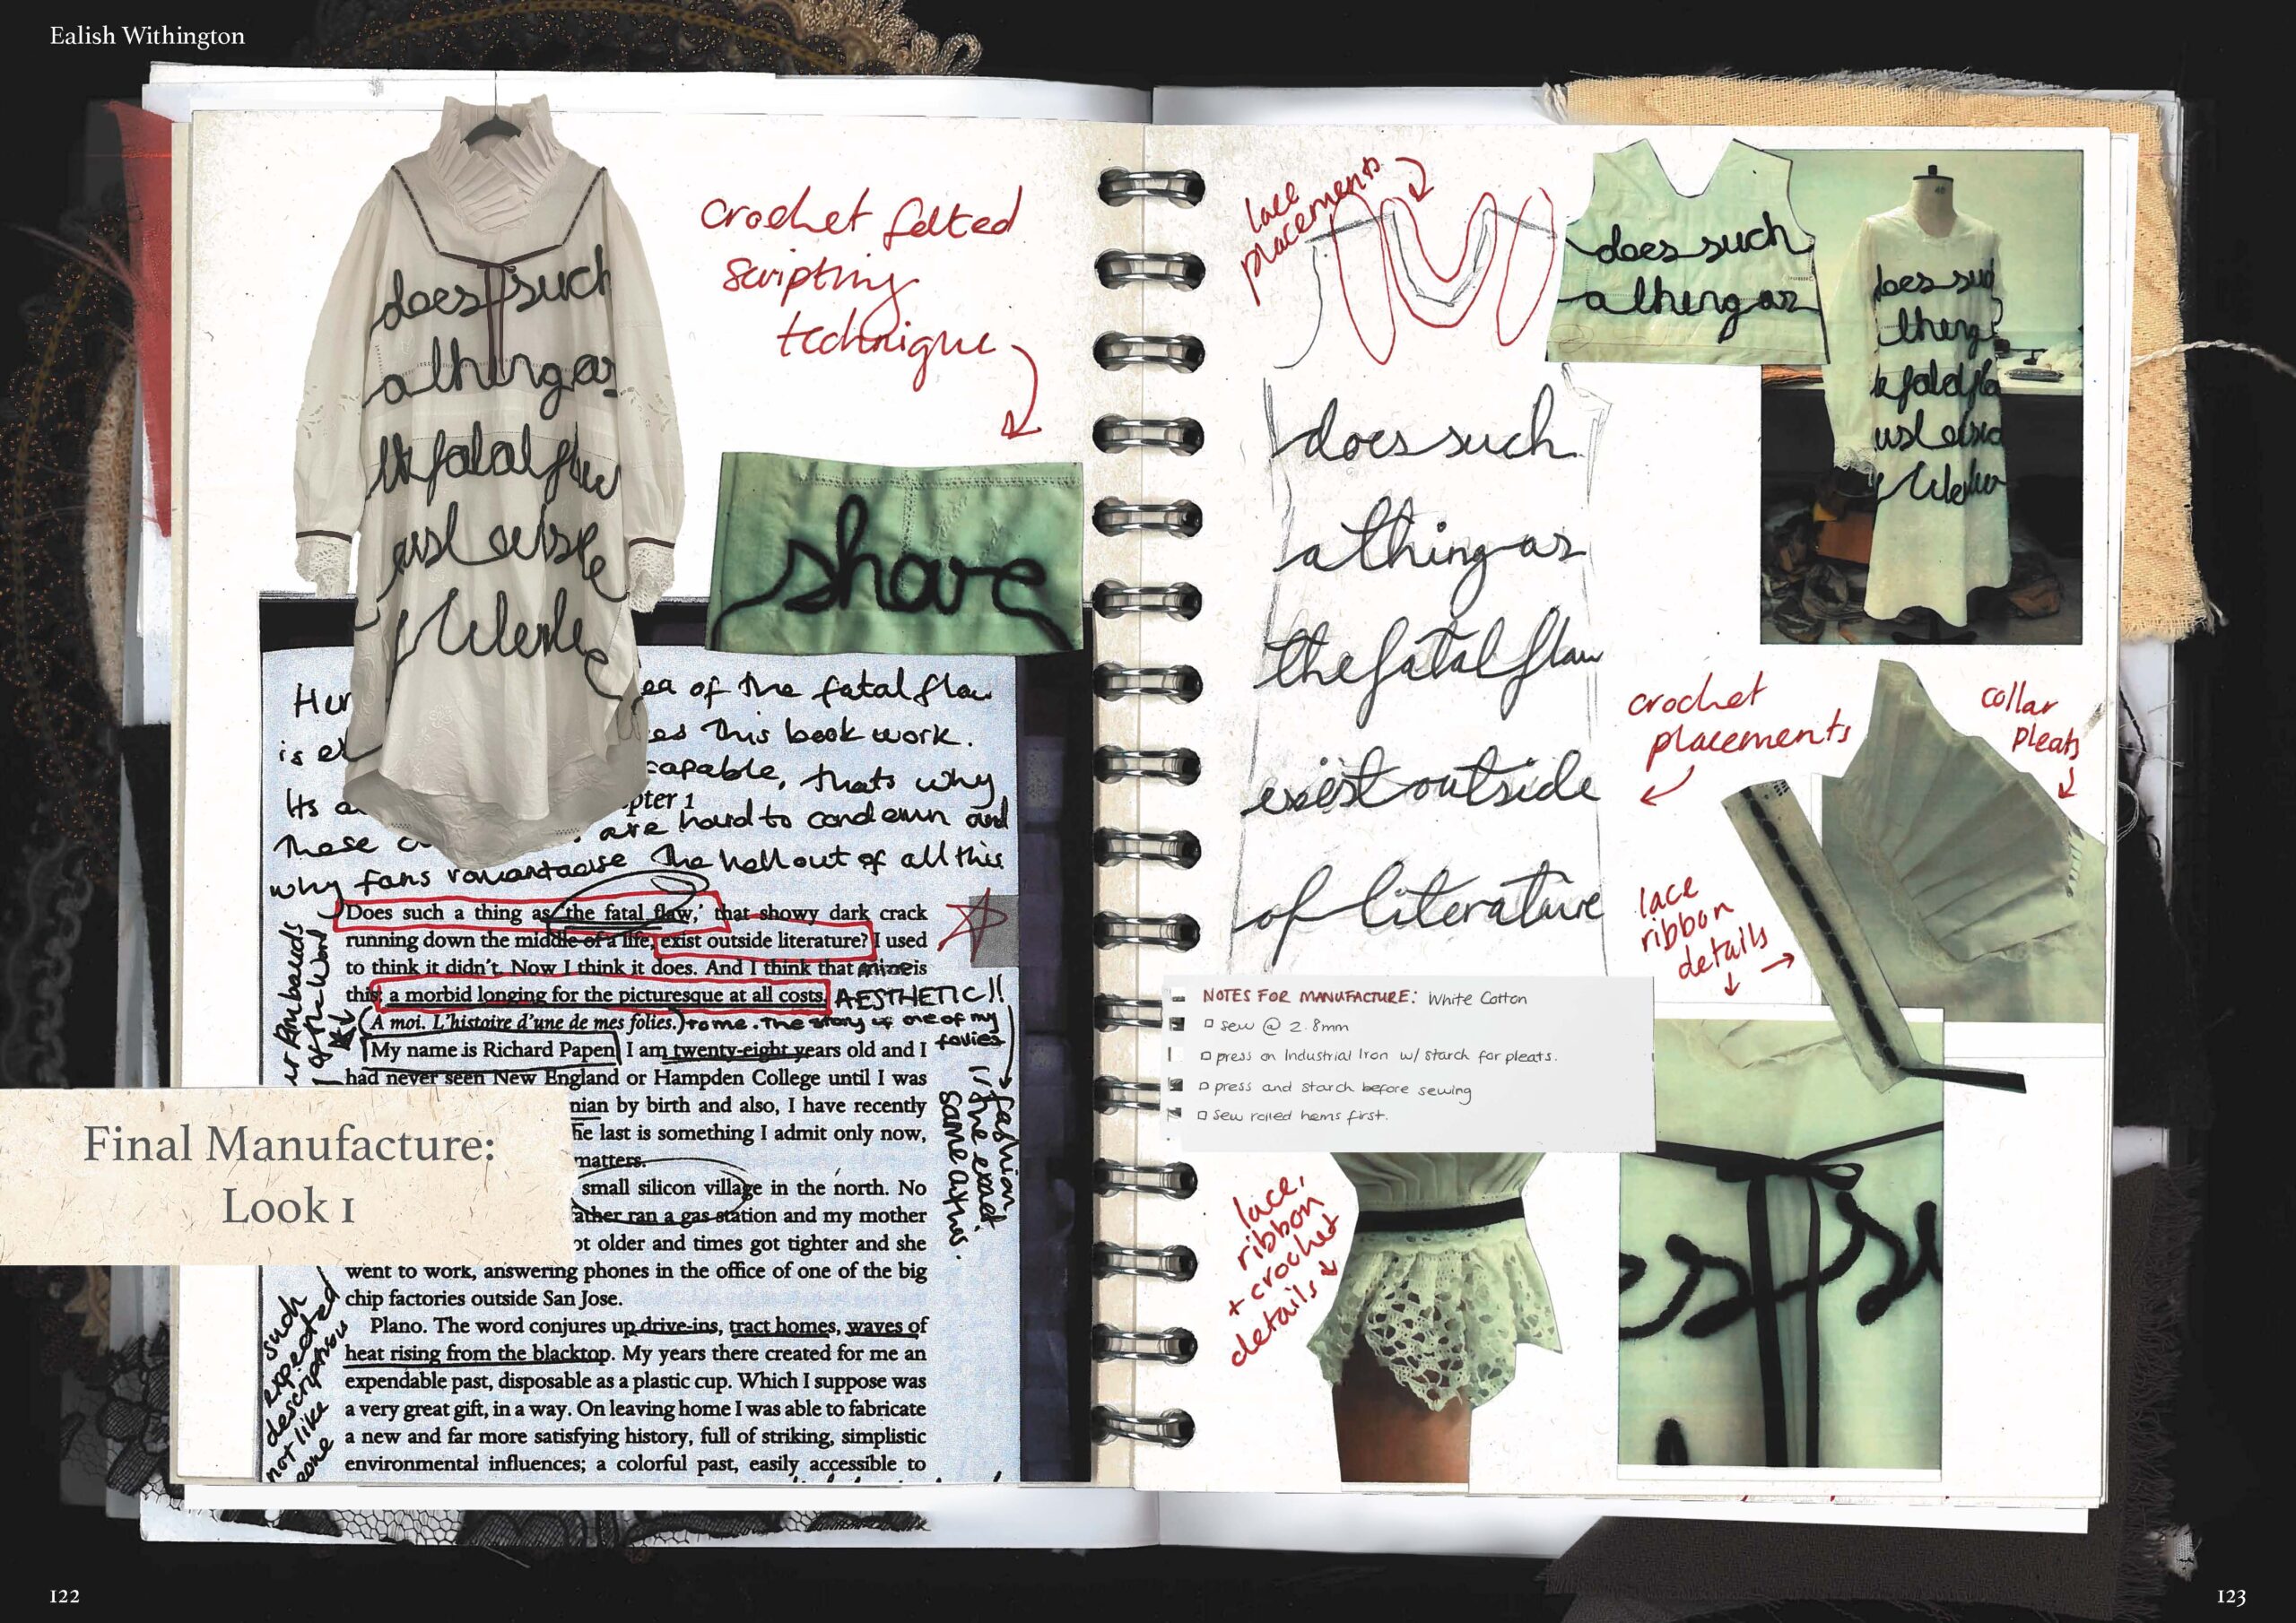 Ealish Withington
does such
a thing as
the fatal flaw
crochet felted
scripting
technique
share
Hu
ea of the fatal flaw
is e
es this book work.
Its a
capable, thats why
pter 1
These
are hard to condemn and
why fans romantacise the hell out of all this
Does such a thing as 'the fatal flaw,' that showy dark crack
running down the middle of a life, exist outside literature? I used
to think it didn't. Now I think it does. And I think that mine is
this: a morbid longing for the picturesque at all costs. AESTHETIC!!
A moi. L'histoire d'une de mes folies. to me. The story of one of my
follies
My name is Richard Papen. I am twenty-eight years old and I
had never seen New England or Hampden College until I was
nian by birth and also, I have recently
he last is something I admit only now,
matters.
small silicon village in the north. No
ather ran a gas station and my mother
ot older and times got tighter and she
went to work, answering phones in the office of one of the big
chip factories outside San Jose.
Plano. The word conjures up drive-ins, tract homes, waves of
heat rising from the blacktop. My years there created for me an
expendable past, disposable as a plastic cup. Which I suppose was
a very great gift, in a way. On leaving home I was able to fabricate
a new and far more satisfying history, full of striking, simplistic
environmental influences; a colorful past, easily accessible to
fashion
is the exact
same as this.
such
expected
descriptions
not like
Final Manufacture:
Look 1
122
lace
placements
does such
a thing as
does such
a thing as
the fatal flaw
exist outside
of literature
does su
thing
crochet
placements
collar
pleats
lace
ribbon
details
NOTES FOR MANUFACTURE: White Cotton
sew @ 2.8mm
press on Industrial Iron w/ starch for pleats.
press and starch before sewing
sew rolled hems first.
lace,
ribbon
+ crochet
details
es su
123